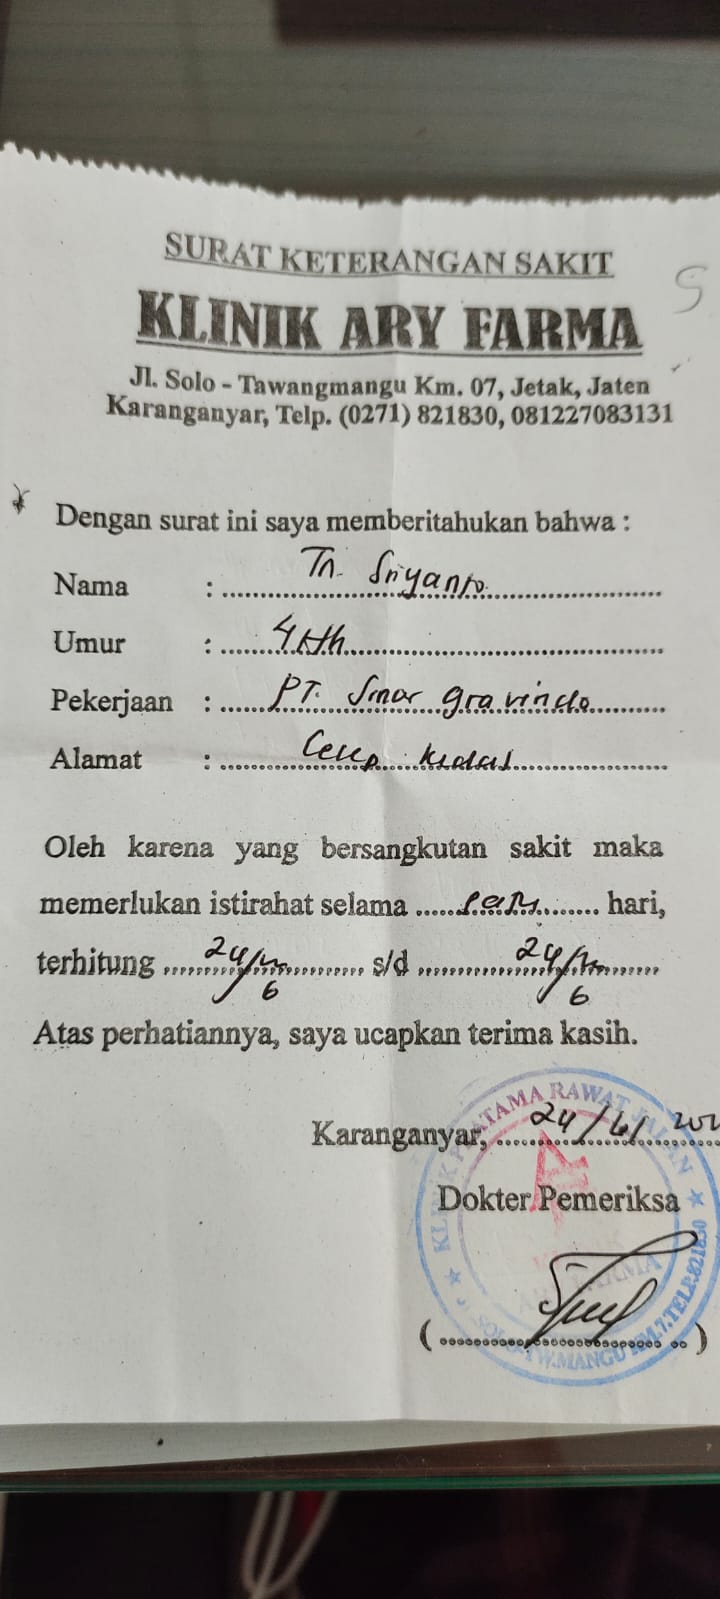 SURAT KETERANGAN SAKIT
KLINIK ARY FARMA
Jl. Solo - Tawangmangu Km. 07, Jetak, Jaten
Karanganyar, Telp. (0271) 821830, 081227083131
Dengan surat ini saya memberitahukan bahwa :
Nama : Tn. Sriyanto
Umur :
Pekerjaan : PT. Sinar gravindo
Alamat :
Oleh karena yang bersangkutan sakit maka
memerlukan istirahat selama ..... hari,
terhitung 24/6 s/d 24/6
Atas perhatiannya, saya ucapkan terima kasih.
Karanganyar, 24/6/
Dokter Pemeriksa
(..........)
KLINIK PRATAMA RAWAT JALAN
KM.7.TELP.821830